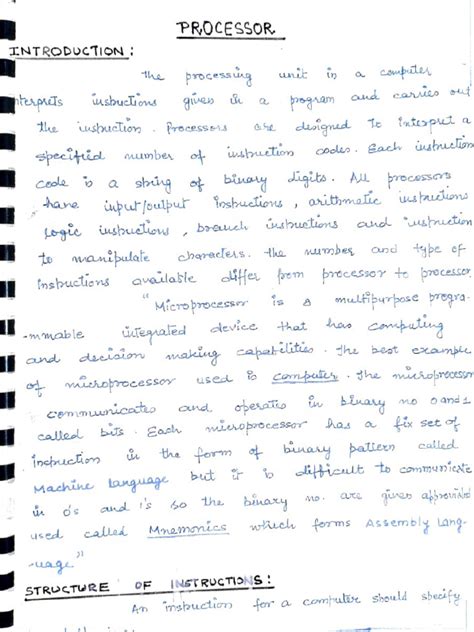 PROCESSOR
INTRODUCTION :
The processing unit in a computer
nterprets insbuctions given in a program and carries out
the insbuction. Processors are designed to interpret a
specified number of insbuction codes. Each insbuction
code is a sting of binary digits. All processors
have input/output Insbuctions, arithmetic insbuctions
logic insbuctions, branch insbuctions and insbuction
to manipulate characters. The number and type of
Insbuctions available differ from processor to processor
"Microprocessor is a multipurpose progra-
-mmable integrated device that has computing
and decision making capabilities. The best example
of microprocessor used is computer. The microprocessor
communicates and operates in binary no 0 and 1
called bits. Each microprocessor has a fix set of
insbuction in the form of binary pattern called
Machine language but it is difficult to communicate
in 0's and 1's so the binary no. are given
used called Mnemonics which forms Assembly Lang-
-uage"
STRUCTURE OF INSTRUCTIONS :
An insbuction for a computer should specify